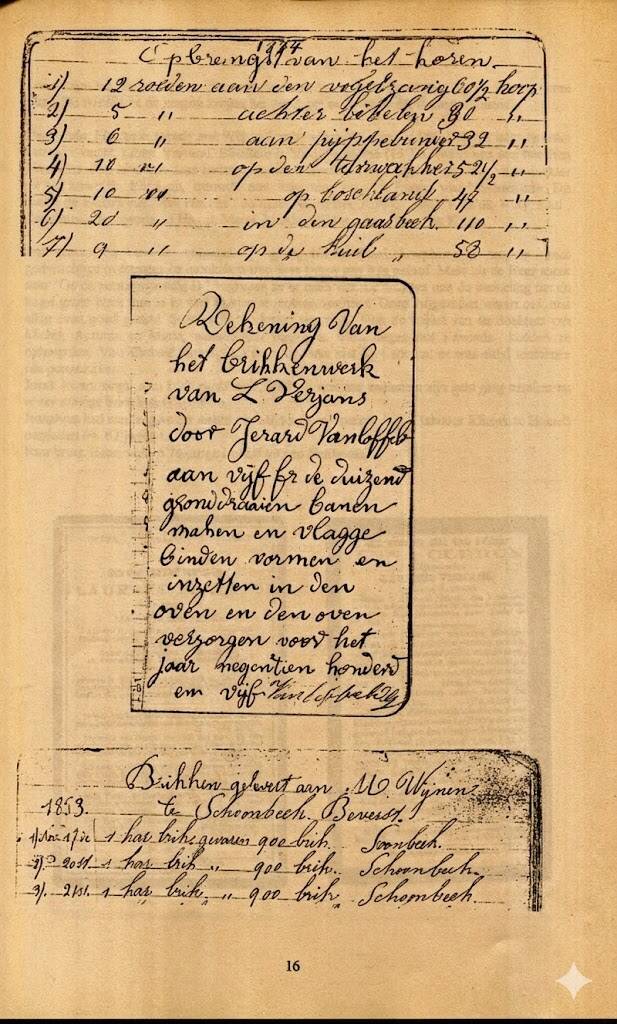 1944
Opbrengst van het koren
1) 12 roeden aan den vogelzang 60 1/2 hoop
2) 5 " achter bikelen 30 "
3) 6 " aan pijppebunier 32 "
4) 10 " op den 52 1/2 "
5) 10 " op boschland 47 "
6) 20 " in den gaasbeek 110 "
7) 9 " op de kuil " 58 "
Rekening Van
het brikkenwerk
van L Verjans
door Jerard Vanloffelt
aan vijf fr de duizend
gronddraaien banen
maken en vlagge
binden vormen en
inzetten in den
oven en den oven
verzorgen voor het
jaar negentien honderd
em vijf
Brikken gelevert aan M Wijnen
1853. te Schoonbeek Beverst.
1) 17 1 kar brik gevaren 900 brik. Soonbeek.
2) 20st. 1 kar brik " 900 brik. Schoonbeek.
3) 21st. 1 kar brik, " 900 brik, Schoonbeek.
16